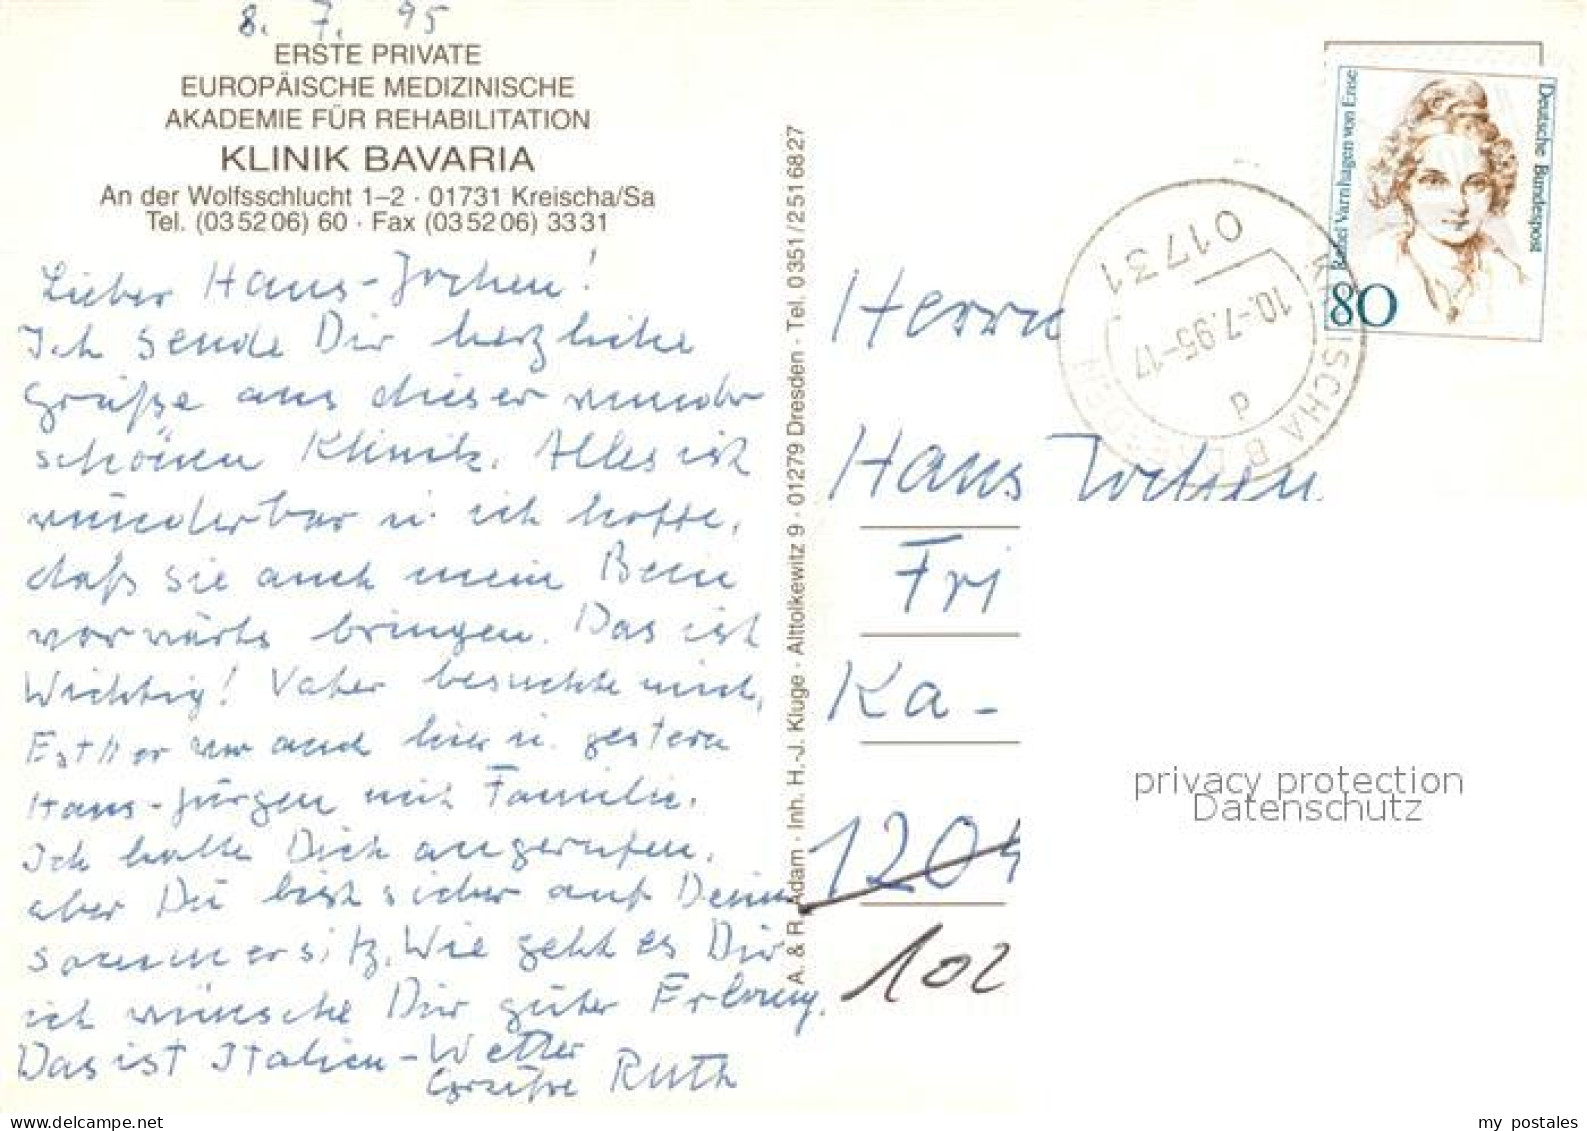 8. 7. 95
ERSTE PRIVATE
EUROPÄISCHE MEDIZINISCHE
AKADEMIE FÜR REHABILITATION
KLINIK BAVARIA
An der Wolfsschlucht 1–2 · 01731 Kreischa/Sa
Tel. (03 52 06) 60 · Fax (03 52 06) 33 31
Lieber Hans-Jochen!
Ich sende Dir herzliche
Grüße aus dieser wunder
schönen Klinik. Alles ist
wunderbar u. ich hoffe,
daß sie auch mein Bein
vorwärts bringen. Das ist
Wichtig! Vater besuchte mich,
Esther war auch hier u. gestern
Hans-Jürgen mit Familie.
Ich hatte Dich angerufen,
aber Du bist sicher auf Deinem
Sommersitz. Wie geht es Dir
ich wünsche Dir guter Erholung.
Das ist Italien-Wetter
Grüße Ruth
A. & R. Adam · Inh. H.-J. Kluge · Alttolkewitz 9 · 01279 Dresden · Tel. 0351/2516827
Deutsche Bundespost
Rahel Varnhagen von Ense
80
01731
10.-7.95-17
d
KREISCHA B DRESDEN
Herrn
Hans Jochen
Fri
Ka-
1204
102
privacy protection
Datenschutz
the-best-of-ak.com
my postales